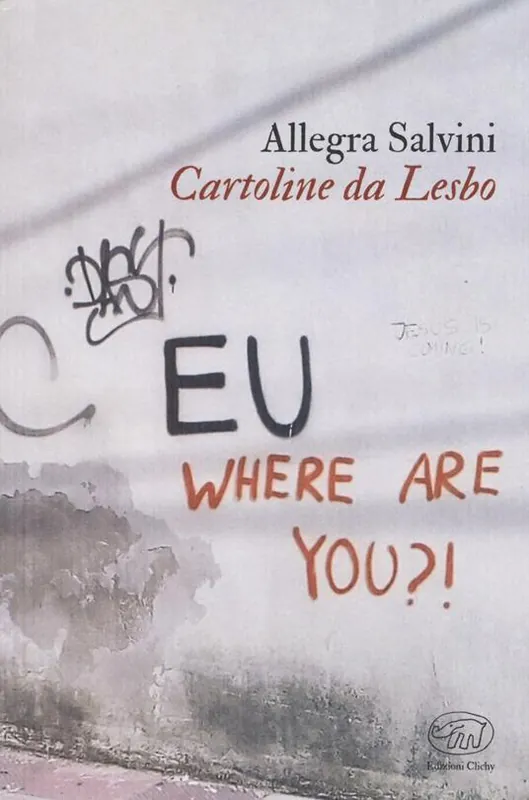 Allegra Salvini
Cartoline da Lesbo
JESUS IS
COMING!
EU
WHERE ARE
YOU?!
Edizioni Clichy